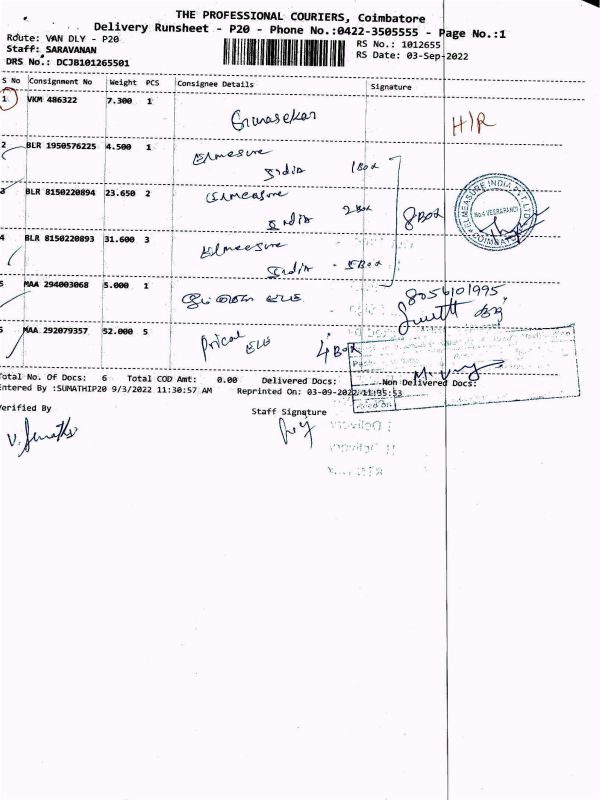 THE PROFESSIONAL COURIERS, Coimbatore
Delivery Runsheet - P20 - Phone No.:0422-3505555 - Page No.:1
Route: VAN DLY - P20
RS No.: 1012655
Staff: SARAVANAN
RS Date: 03-Sep-2022
DRS No.: DCJB101265501
S No Consignment No Weight PCS Consignee Details Signature
1 VKM 486322 7.300 1
Gunasekar
H/R
2 BLR 1950576225 4.500 1 Elmeasure
India 1 Box
3 BLR 8150220894 23.650 2 Elmeasure
India 2 Box 8 Box
ELMEASURE INDIA PVT. LTD.
COIMBATORE
4 BLR 8150220893 31.600 3 Elmeasure
India - 5 Box
5 MAA 294003068 5.000 1
8056101995
MAA 292079357 52.000 5 Pricol
4 Box
Total No. Of Docs: 6 Total COD Amt: 0.00 Delivered Docs: Non Delivered Docs:
Entered By :SUMATHIP20 9/3/2022 11:30:57 AM Reprinted On: 03-09-2022 11:35:53
Verified By
Staff Signature